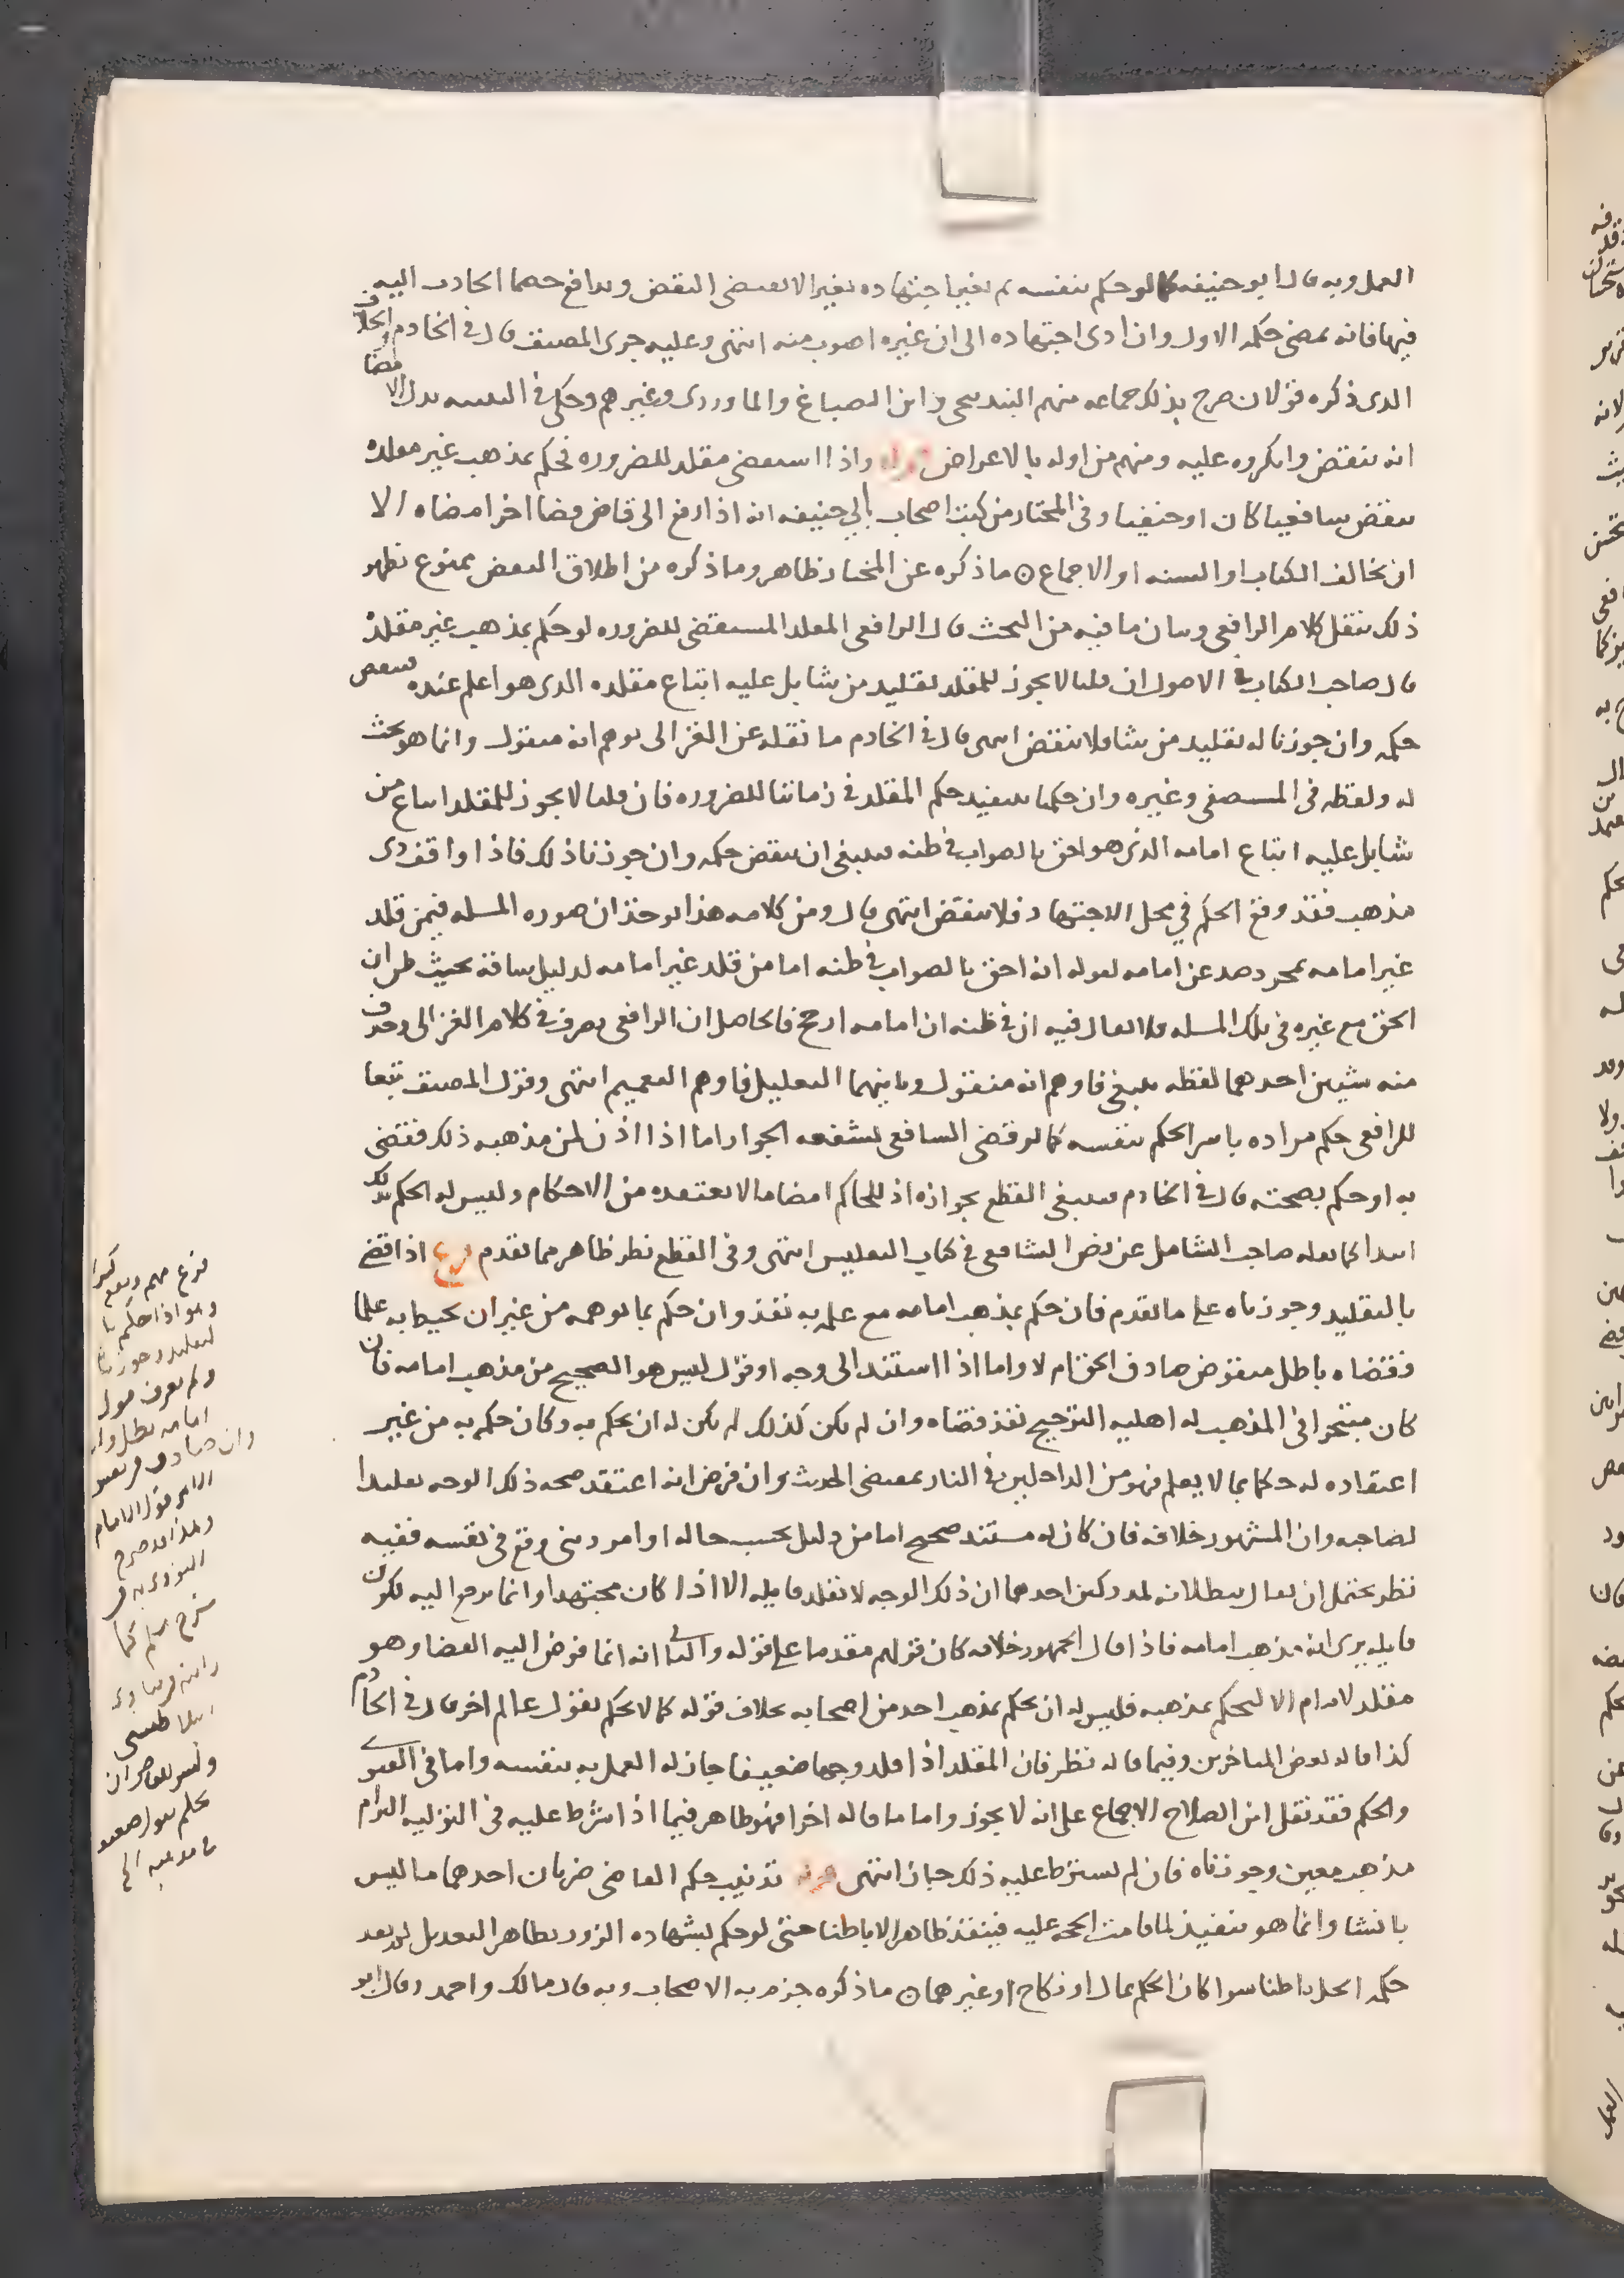 العمل وبه قال ابو حنيفه كما لو حكم بنفسه ثم تغير اجتهاده تغيرا لا يقتضى النقض وترافع خصما الحادث اليه
فيها فانه يمضى حكمه الاول وان ادى اجتهاده الى ان غيره اصوب منه انتهى وعليه جرى المصنف قال فى الخادم الخلاف
الذى ذكره قولان صرح بذلك جماعه منهم البندنيجى وابن الصباغ والماوردى وغيرهم وحكى فى بدل الامضا
انه ينقض وانكروه عليه ومنهم من اوله بالاعراض قوله واذا استقضى مقلد للضروره فحكم بمذهب غير مقلده
ينقض شافعيا كان او حنفيا وفى المختار من كتب اصحاب ابى حنيفه انه اذا رفع الى قاض قضا اخر امضاه الا
ان يخالف الكتاب او السنه او الاجماع ما ذكره عن المختار ظاهر وما ذكره من اطلاق النقض ممنوع يظهر
ذلك بنقل كلام الرافعى وبيان ما فيه من البحث قال الرافعى المقلد المستقضى للضروره لو حكم بمذهب غير مقلده
قال صاحب الكتاب فى الاصول ان قلنا لا يجوز للمقلد تقليد من شا بل عليه اتباع مقلده الذى هو اعلم عنده ينقض
حكمه وان جوزنا له تقليد من شا فلا ينقض انتهى قال فى الخادم ما نقله عن الغزالى يوهم انه منقول وانما هو بحث
له ولفظه فى المستصفى وغيره وان حكمنا بتنفيذ حكم المقلد فى زماننا للضروره فان قلنا لا يجوز للمقلد اتباع من
شا بل عليه اتباع امامه الذى هو احق بالصواب فى ظنه فينبغى ان ينقض حكمه وان جوزنا ذلك فاذا وافق ذى
مذهب فقد وقع الحكم فى محل الاجتهاد فلا ينقض انتهى قال ومن كلامه هذا يوخذ ان صوره المسله فيمن قلد
غير امامه بمجرد عن امامه لقوله انه احق بالصواب فى ظنه اما من قلد غير امامه لدليل ساقه بحيث ظن ان
الحق مع غيره فى تلك المسله فلا يقال فيه ان فى ظنه ان امامه ارجح فالحاصل ان الرافعى تصرف فى كلام الغزالى وحذف
منه شيين احدهما لفظه ينبغى فاوهم انه منقول وثانيهما التعليل فاوهم التعميم انتهى وقول المصنف تبعا
للرافعى حكم مراده باشر الحكم بنفسه كما لو قضى الشافعى بشفعه الجوار اما اذا اذن لمن مذهبه ذلك فقضى
به او حكم بصحته قال فى الخادم فينبغى القطع بجوازه اذ للحاكم امضا ما لا يعتقده من الاحكام وليس له الحكم بذلك
ابتدا كما نقله صاحب الشامل عن نص الشافعى فى كتاب التفليس انتهى وفى القطع نظر ظاهر مما تقدم فرع اذا قضى
بالتقليد وجوزناه على ما تقدم فان حكم بمذهب امامه مع علمه به نفذ وان حكم بما توهمه من غير ان يحيط به علما
فقضاه باطل منقوض صادف الحق ام لا واما اذا استند الى وجه او قول ليس هو الصحيح من مذهب امامه فان
كان متبحرا فى المذهب له اهليه الترجيح نفذ قضاه وان لم يكن كذلك لم يكن له ان يحكم به وكان حكمه به من غير
اعتقاده له حكما بما لا يعلم فهو من الداخلين فى النار بمقتضى الحديث وان فرض انه اعتقد صحه ذلك الوجه تقليدا
لصاحبه وان المشهور خلافه فان كان له مستند صحيح اما من دليل بحسب حاله او امر دينى وقع فى نفسه ففيه
نظر يحتمل ان يقال ببطلانه لمدركين احدهما ان ذلك الوجه لا يقلد قايله الا اذا كان مجتهدا وانما يرجع اليه لكون
قايله يرى انه مذهب امامه فاذا قال الجمهور خلافه كان قولهم مقدما على قوله والثانى انه انما فوض اليه القضا وهو
مقلد لامام الا ليحكم بمذهبه فليس له ان يحكم بمذهب احد من اصحابه بخلاف قوله كما لا يحكم بقول عالم اخر قال فى الخادم
كذا قاله بعض المتاخرين وفيما قاله نظر فان المقلد اذا قلد وجها ضعيفا جاز له العمل به بنفسه واما فى الفتوى
والحكم فقد نقل ابن الصلاح الاجماع على انه لا يجوز واما ما قاله اخرا فهو ظاهر فيما اذا شرط عليه فى التوليه التزام
مذهب معين وجوزناه فان لم يشترط عليه ذلك جاز انتهى قوله تذنيب حكم القاضى ضربان احدهما ما ليس
بانشا وانما هو تنفيذ لما قامت الحجه عليه فينفذ ظاهرا لا باطنا حتى لو حكم بشهاده الزور بظاهر التعديل لم يفد
حكمه الحل باطنا سوا كان الحكم بمال او نكاح او غيرهما ما ذكره جزم به الاصحاب وبه قال مالك واحمد وقال ابو
فرع مهم ويقع كثيرا
وهو اذا حكم با
لتقليد وجوزناه
ولم يعرف قول
امامه بطل وان
وان صادف
الامر قول الامام
وبهذا صرح
النووى
شرح مسلم كما
وليس للقاضى ان
يحكم بقول ضعيف